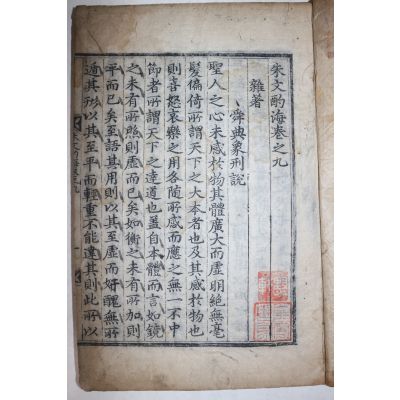 朱文酌海卷之九
雜著
舜典象刑說
聖人之心未感於物其體廣大而虛明絕無毫
髮偏倚所謂天下之大本者也及其感於物也
則喜怒哀樂之用各隨所感而應之無一不中
節者所謂天下之達道也蓋自本體而言如鏡
之未有所照則虛而已矣如衡之未有所加則
平而已矣至語其用則以其至虛而好醜無所
遁其形以其至平而輕重不能違其則此所以